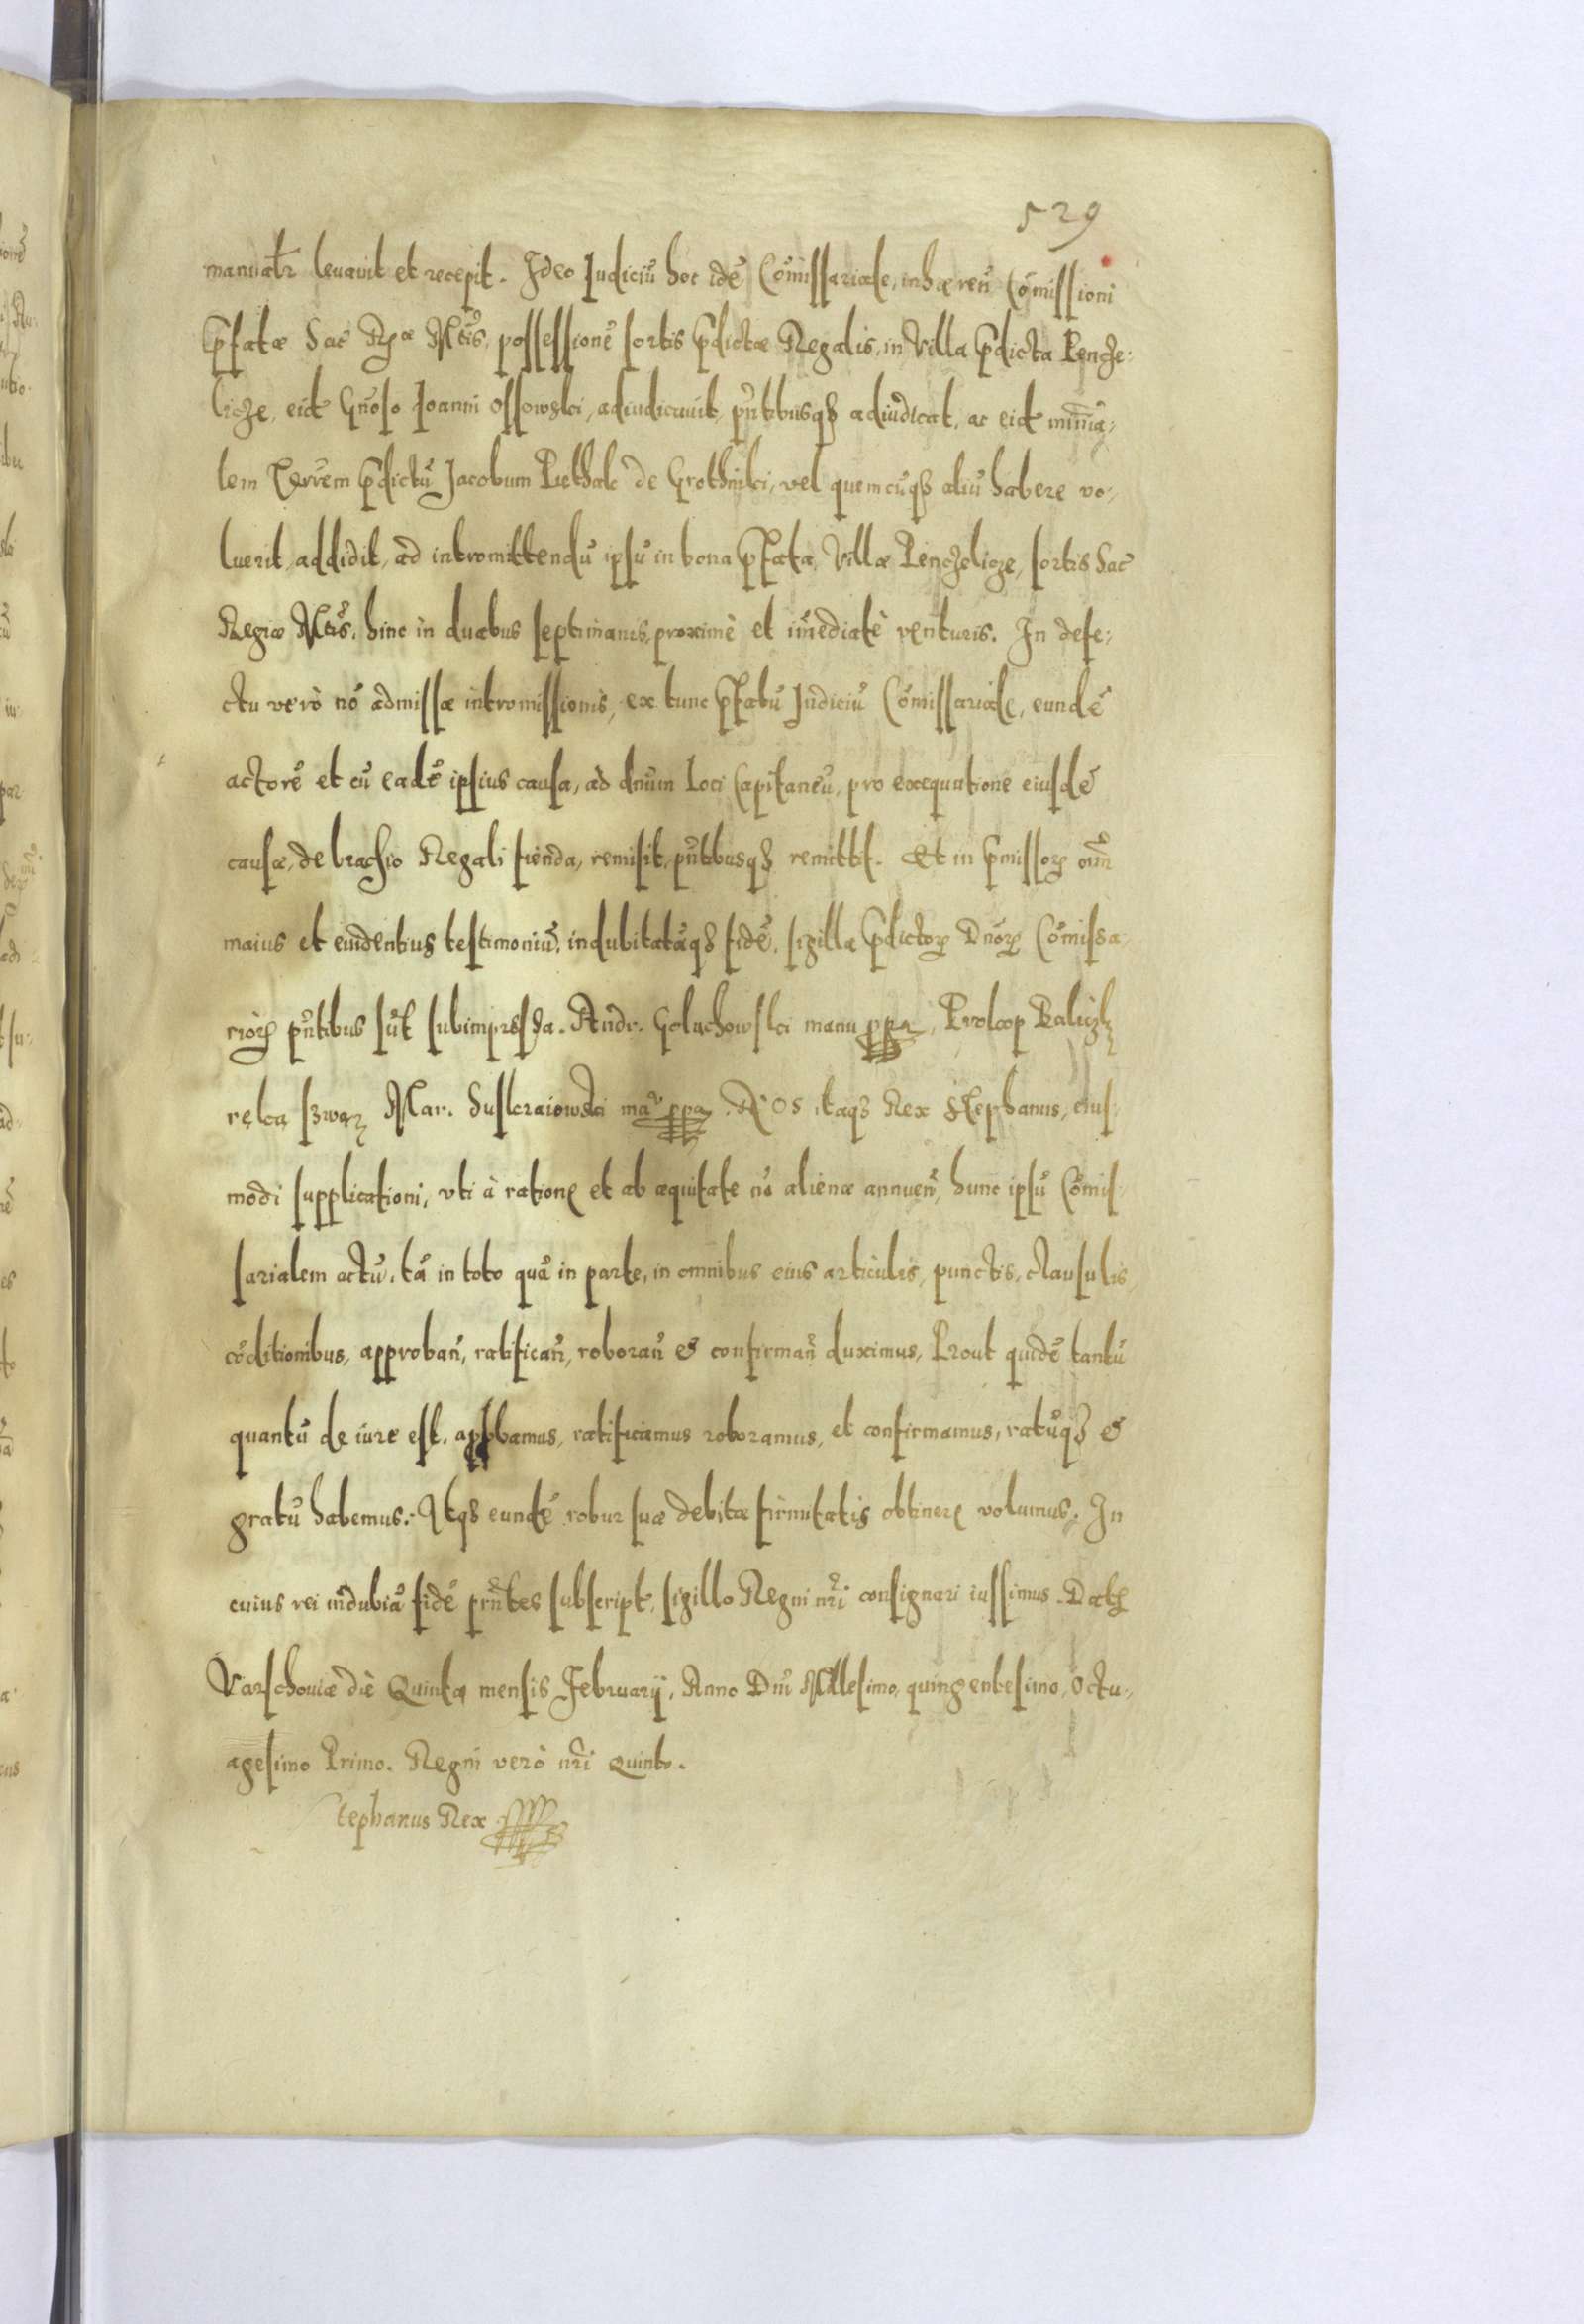 529
manualr levavit et recepit. Ideo Iudiciũ hoc idẽ Cõmissariale, inhæren̄ Cõmissioni
p̄fatæ Sac Rææ Mtis, possessionẽ sortis p̄dictæ Regalis, in Villa p̄dicta Pencze:
licze, eidt Gñoso Ioanni Ossowski, adiudicavit, pñtibusq3 adiudicat, ac eidt
p̄dictũ Jacobum Puthak de Grothniki, vel quemcũq3 aliũ habere vo:
luerit, addidit, ad intromittendũ ipsũ in bona p̄fata, Villæ Penczelicze, sortis Sac
Regiæ Mtis, hinc in duabus septimanis, proximè et im̃ediatè venturis. In defe:
ctu verò nõ admissæ intromissionis, ex tunc p̄fatũ Iudiciũ Cõmissariale, eundẽ
actorẽ et cũ eadẽ ipsius causa, ad dnũm loci Capitaneũ, pro exequutione eiusdẽ
causæ, de brachio Regali fienda, remisit, pñtibusq3 remittit. Et in p̄missorꝝ oim̃
maius et evidentius testimoniũ, indubitatãq3 fidẽ, sigilla p̄dictorꝝ Dñorꝝ Cõmissa
riorꝝ pñtibus sũt subimpressa. Andr. Goluchowski manu ppa, Prokop
ręką swą Mar. Suskraiowski mãu ppa. NOS itaq3 Rex Stephanus, eius:
modi supplicationi, vti à ratione et ab æquitate nõ alienæ annuen̄, hunc ipsũ Cõmis:
sarialem actũ, tã in toto quã in parte, in omnibus eius articulis, punctis, clausulis
cõditionibus, approban̄, ratifican̄, roboran̄ & confirman̄ duximus, Prout quidẽ tantũ
quantũ de iure est, approbamus, ratificamus roboramus, et confirmamus, ratũq3 &
gratũ habemus. Atq3 eundẽ robur suæ debitæ firmitatis obtinere volumus. In
cuius rei indubiã fidẽ pr̃ntes subscript, sigillo Regni nr̃i consignari iussimus. Datt
Varschoviæ diẽ Quinta mensis Februarij, Anno Dni Millesimo, quingentesimo, Octu:
agesimo Primo. Regni verò nr̃i Quinto.
Stephanus Rex